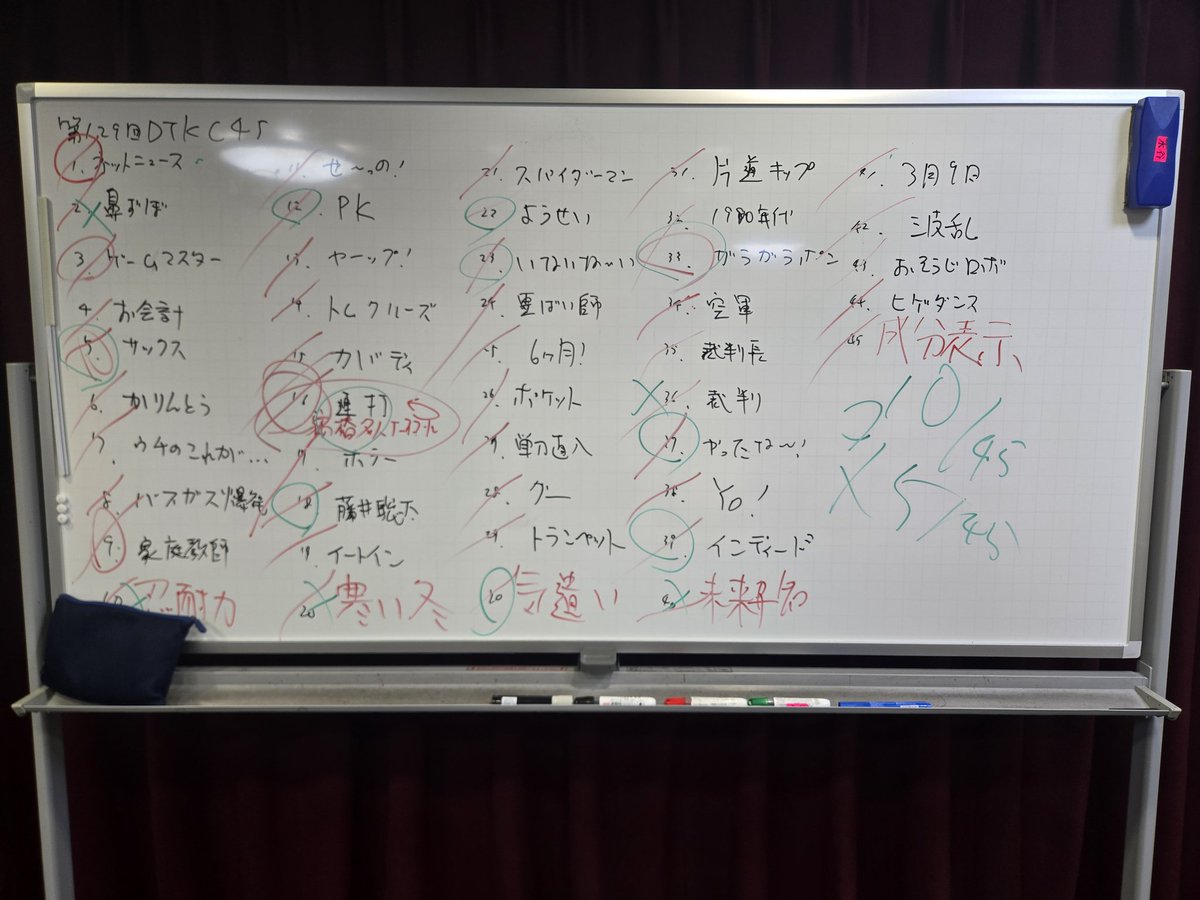 第129回DTKC45
1. ホットニュース
2. 鼻ずぼ
3. ゲームマスター
4. お会計
5. サックス
6. かりんとう
7. ウチのこれが…
8. バスガス爆発
9. 家庭教師
10. 忍耐力
11. せ〜っの!
12. PK
13. ヤーップ!
14. トムクルーズ
15. カバディ
16. 連打
17. ホラー
18. 藤井聡太
19. イートイン
20 寒い冬
21. スパイダーマン
22 ようせい
23. いないな〜い
24. 悪ばい師
25. 6ヶ月!
26. ポケット
27. 単刀直入
28. グー
29. トランペット
20 気遣い
31. 片道キップ
32. 1980年代
33. がらがらポン
34. 空軍
35. 裁判長
36. 裁判
37. かったな〜!
38. YO!
39. インディード
40 未来予知
41. 3月9日
42. 三波乱
43. おそうじロボ
44. ヒゲダンス
45 成分表示
10/45
X 5/45